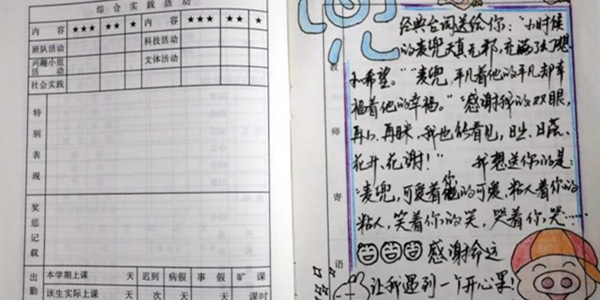 综合实践活动
内容 ★★★ ★★ ★ 内容 ★★★ ★★ ★
班队活动 科技活动
兴趣小组活动 文体活动
社会实践
特别表现
奖惩记载
出勤 本学期上课 天 迟到 病假 事假 旷课
该生实际上课 天 天 天 天 课时
教师寄语
经典台词送给你:“小时候
的麦兜天真无邪,充满了幻想
和希望。”“麦兜,平凡着他的平凡却幸
福着他的幸福。”“感谢我的双眼,
再小、再眯,我也能看见,日出、日落、
花开、花谢!” 我想送你的是:
“麦兜,可爱着你的可爱,粘人着你的
粘人,笑着你的笑,哭着你哭……
感谢命运
让我遇到一个开心果!